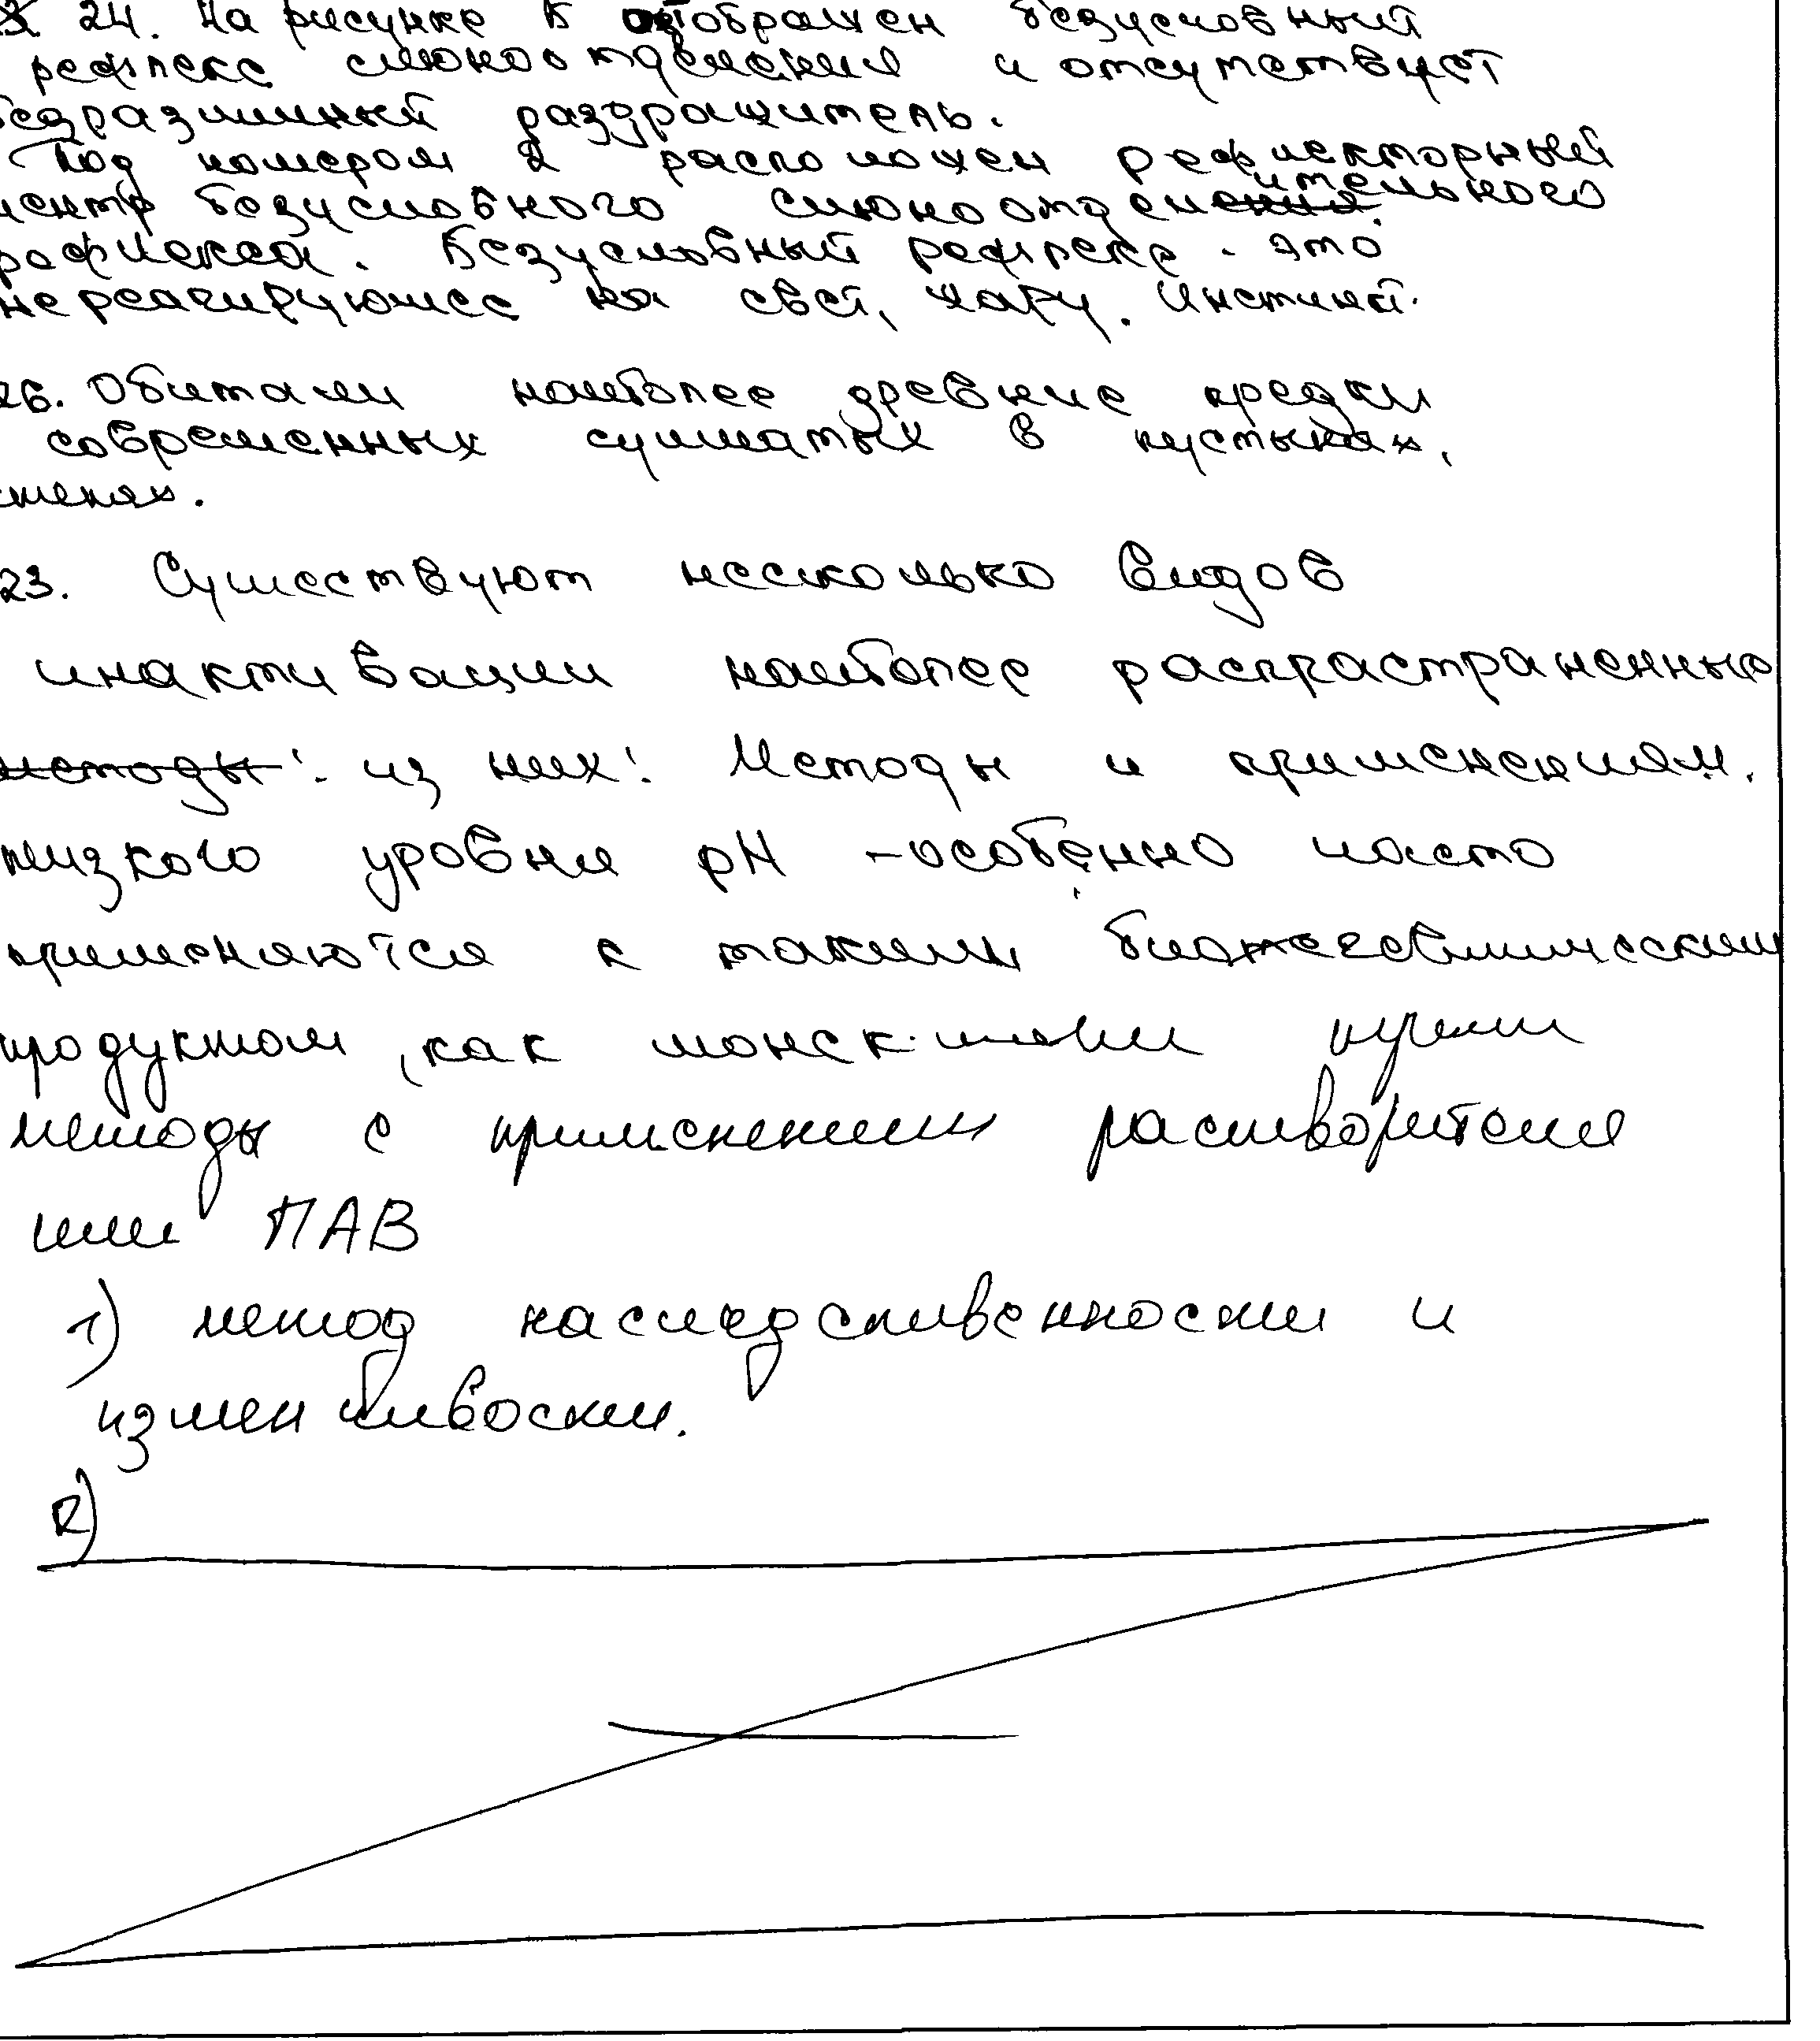 24. На рисунке Б изображен безусловный
рефлекс слюноотделения и отсутствует
безразличный раздражитель.
Под номером 2 расположен рефлекторный
центр безусловного слюноотделительного
рефлекса. Безусловный рефлекс - это
не реагирующее на свет, жару. Инстинкт.
26. Обитали наиболее древние предки
современных сумчатых в пустынях,
степях.
23. Существуют несколько видов
инактивации наиболее распрастраненные
методы: из них: Методы и применением.
низкого уровня pH - особенно часто
применяются к таким
продуктом, как
методы с применением растворителя
или ПАВ
1) метод наследственности и
изменчивости.
2)